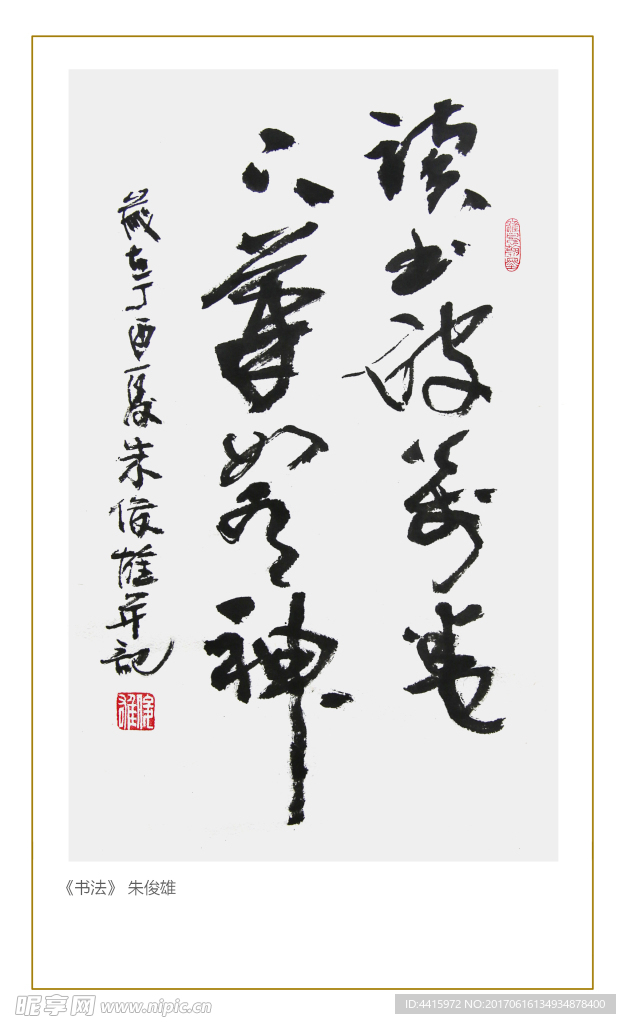 读书破万卷
下笔如有神
岁在丁酉夏朱俊雄并记
《书法》 朱俊雄
昵享网 www.nipic.cn
ID:4415972 NO:20170616134934878400